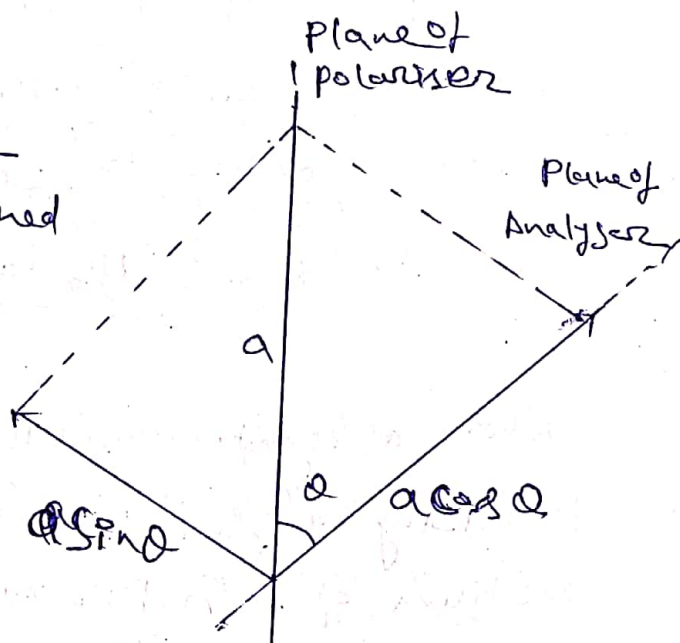 Plane of
polariser
ned
Plane of
Analyser
a
θ
a cos θ
a sin θ